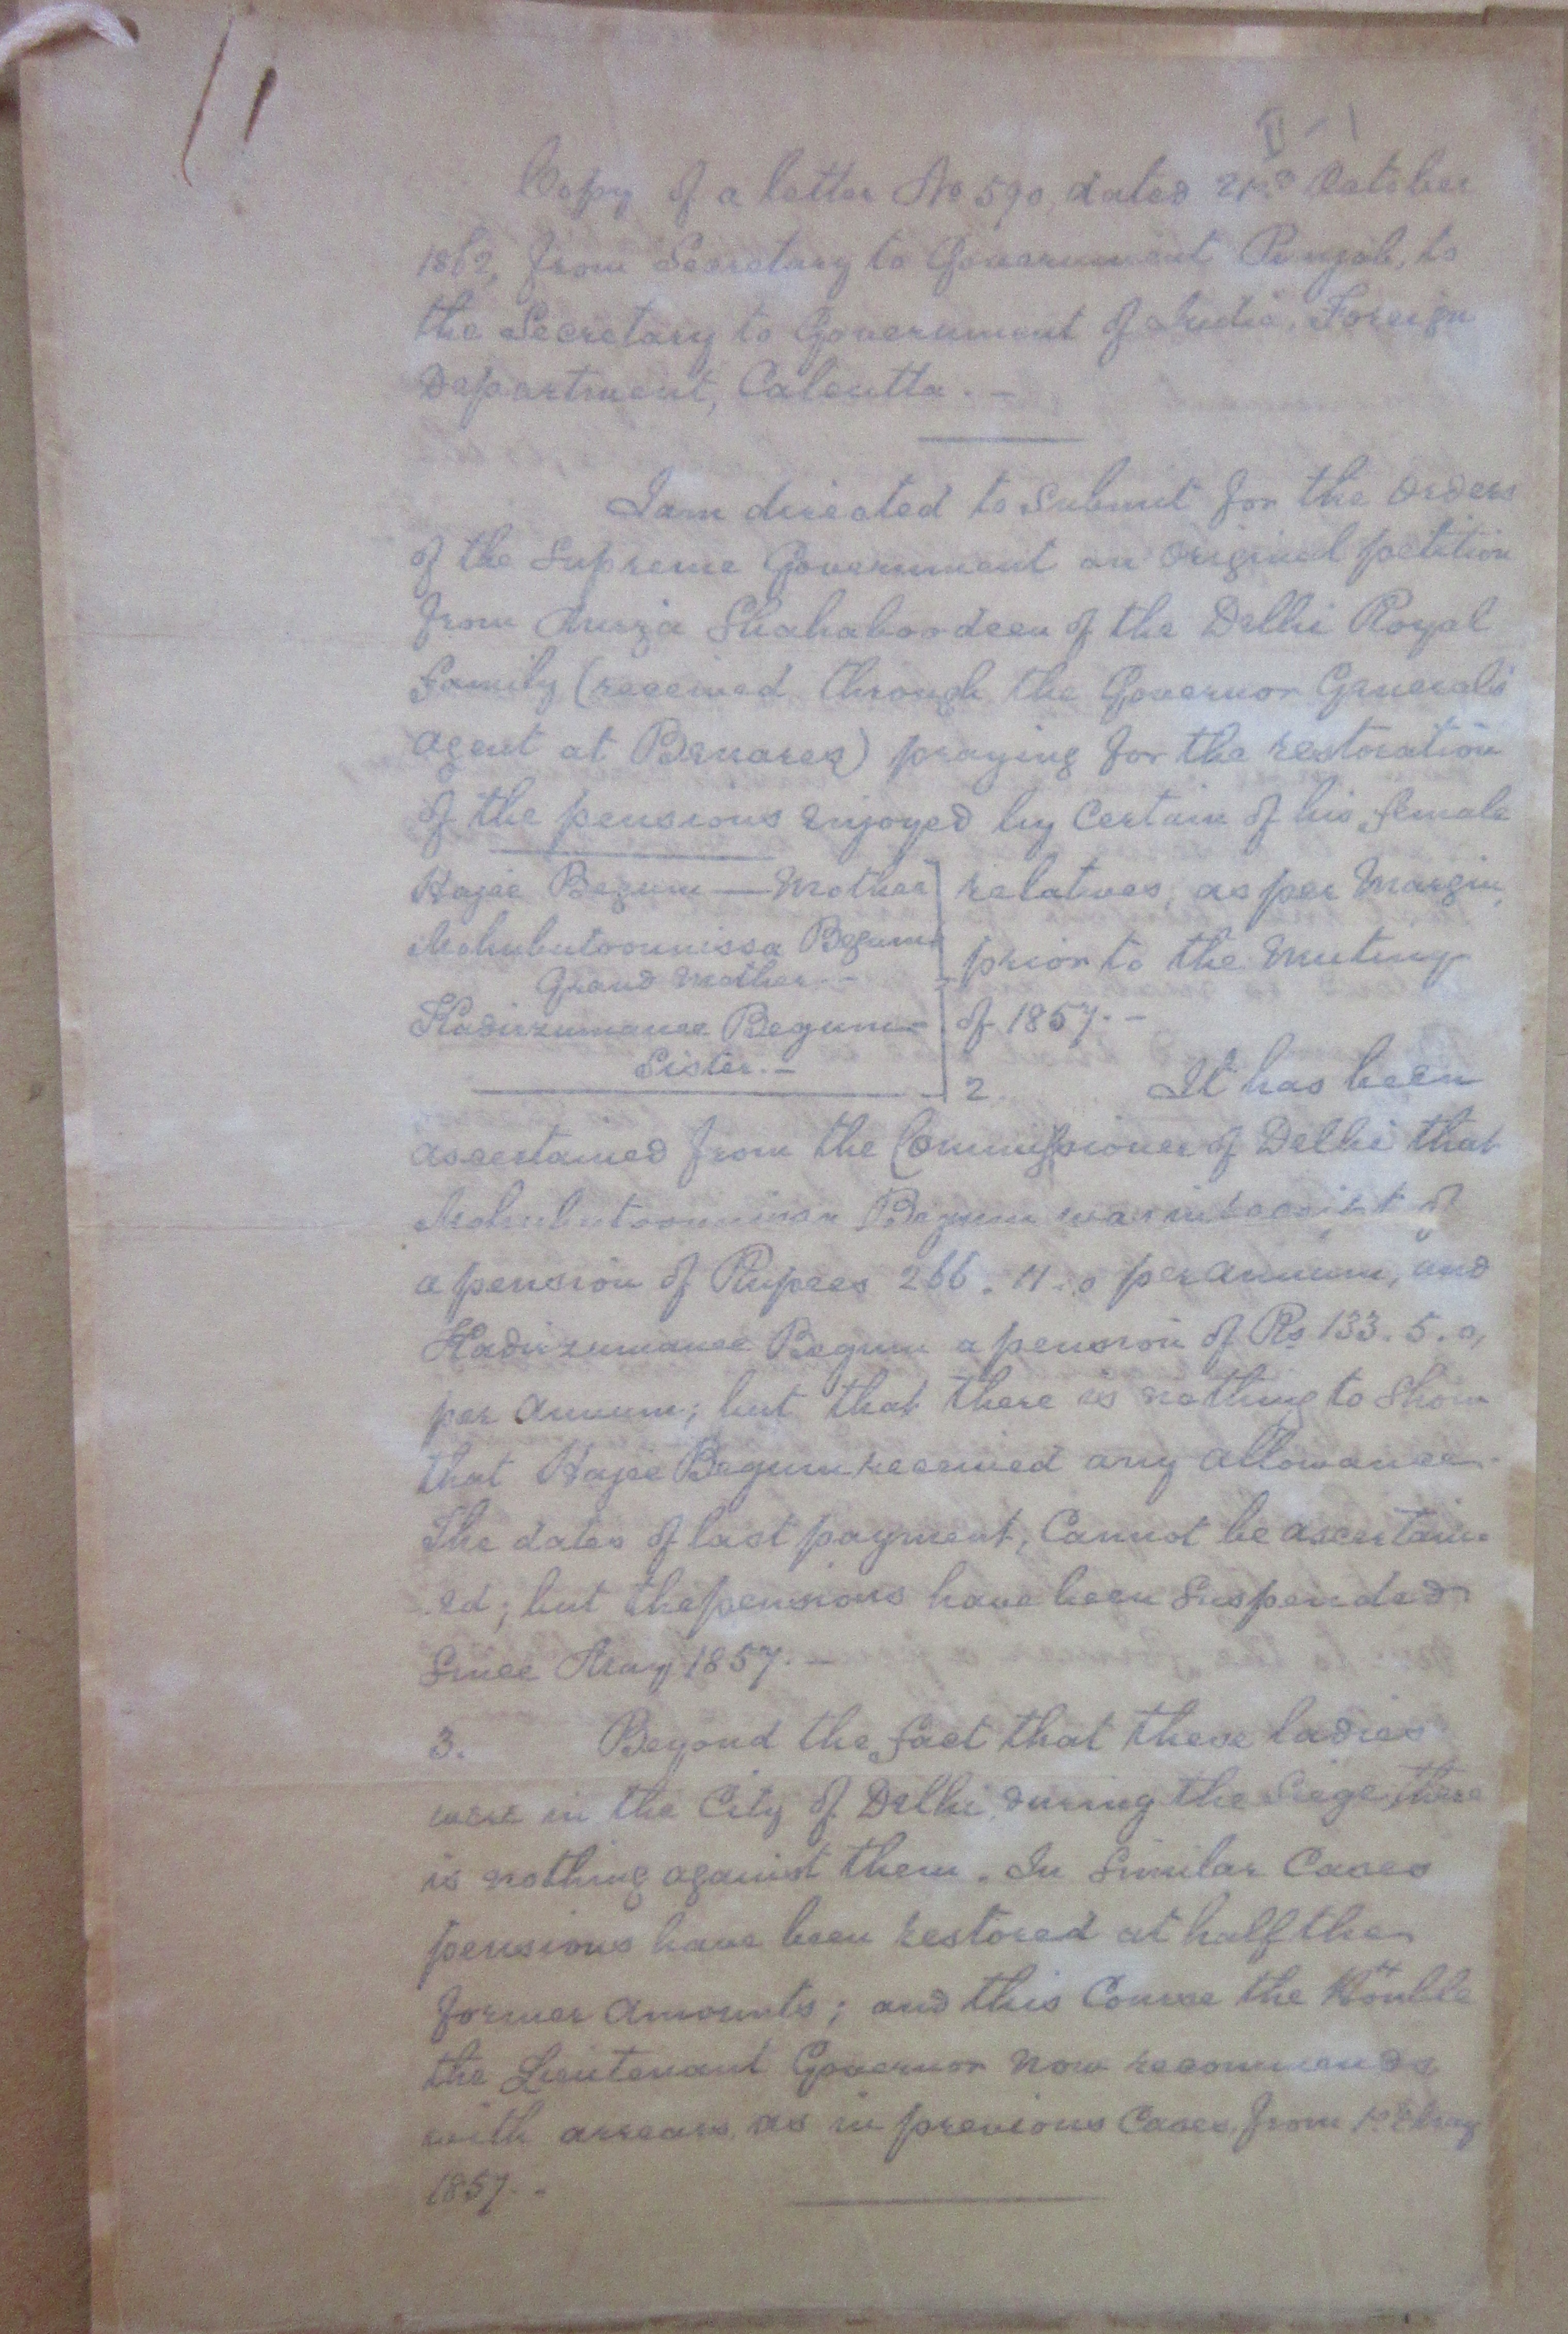 11
Copy of a letter No 590, dated October
1862, from Secretary to Government Punjab, to
the Secretary to Government of India, Foreign
Department, Calcutta. –
I am directed to submit for the orders
of the Supreme Government an original petition
from Mirza Shahaboodeen of the Delhi Royal
family (received through the Governor General's
agent at Benares) praying for the restoration
of the pensions enjoyed by certain of his female
Hajee Begum — Mother
Begum
Grand Mother. –
Begum –
Sister. –
relatives, as per Margin,
prior to the Mutiny
of 1857. –
2. It has been
ascertained from the Commissioner of Delhi that
Begum was in receipt of
a pension of Rupees 266. 11. 0 per annum, and
Begum a pension of Rs 133. 5. 0,
per annum; but that there is nothing to show
that Hajee Begum received any allowance.
The dates of last payment, Cannot be ascertain-
-ed; but the pensions have been suspended
since May 1857. –
3. Beyond the fact that these ladies
were in the City of Delhi, during the Siege, there
is nothing against them. In similar Cases
pensions have been restored at half the
former amounts; and this Course the Hon'ble
the Lieutenant Governor now recommends,
with arrears, as in previous Cases, from 1st May
1857. -